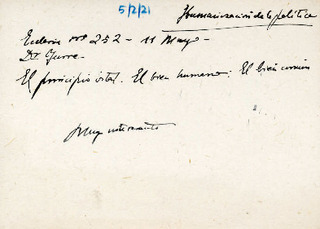 5/2/21
Humanización de la política
Ecclesia nº 252 - 11 Mayo -
Dr. Yurre -
El principio vital. El bien humano: El bien común
Muy interesante